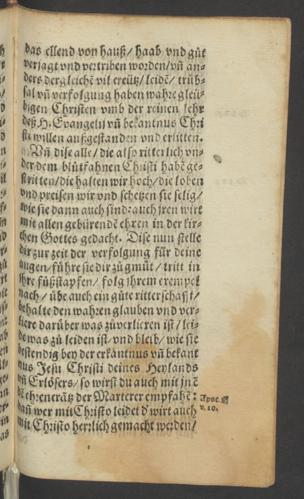 das ellend von hauß/ haab vnd gůt
verjagt vnd vertriben worden/ vñ an-
ders dergleichẽ vil creütz/ leidẽ/ trüb-
sal vñ verfolgung haben wahre gleü-
bigen Christen vmb der reinen lehr
deß H. Evangelij vñ bekantnus Chri
sti willen außgestanden vnd erlitten.
Vñ dise alle/ die also ritterlich vn-
der dem blůtfahnen Christi habẽ ge-
stritten/ die halten wir hoch/ die loben
vnd preisen wir vnd schetzen sie selig/
wie sie dann auch sind: auch jren wirt
mit allen gebürendẽ ehren in der kir-
chen Gottes gedacht. Dise nun stelle
dir zur zeit der verfolgung für deine
augen/ führe sie dir zů gmůt/ tritt in
ihre fůßstapfen/ folg ihrem exempel
nach/ übe auch ein gůte ritterschafft/
behalte den wahren glauben vnd ver-
liere darüber was zů verlieren ist/ lei-
de was zů leiden ist/ vnd bleib/ wie sie
bestendig bey der erkãntnus vñ bekant
nus Jesu Christi deines Heylands
vñ Erlösers/ so wirst du auch mit jnẽ
die ehrenkrätz der Marterer empfahẽ:
dañ wer mit Christo leidet d' wirt auch
mit Christo herrlich gemacht werden/
Apoc.
v. 10.